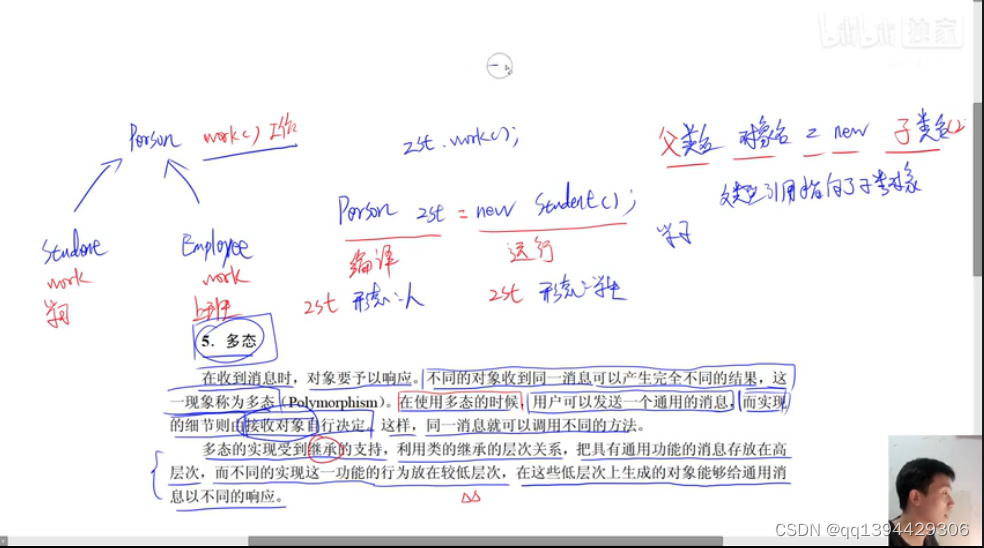 bilibili 独家
Person work() 工作
zst.work();
父类名 对象名 = new 子类名()
父类型引用指向了子类对象
Person zst = new Student();
编译 运行
学习
Student Employee
work work
学习 上班
zst 形态:人 zst 形态:学生
5．多态
在收到消息时，对象要予以响应。不同的对象收到同一消息可以产生完全不同的结果，这
一现象称为多态（Polymorphism）。在使用多态的时候，用户可以发送一个通用的消息，而实现
的细节则由接收对象自行决定。这样，同一消息就可以调用不同的方法。
多态的实现受到继承的支持，利用类的继承的层次关系，把具有通用功能的消息存放在高
层次，而不同的实现这一功能的行为放在较低层次，在这些低层次上生成的对象能够给通用消
息以不同的响应。
CSDN @qq1394429306